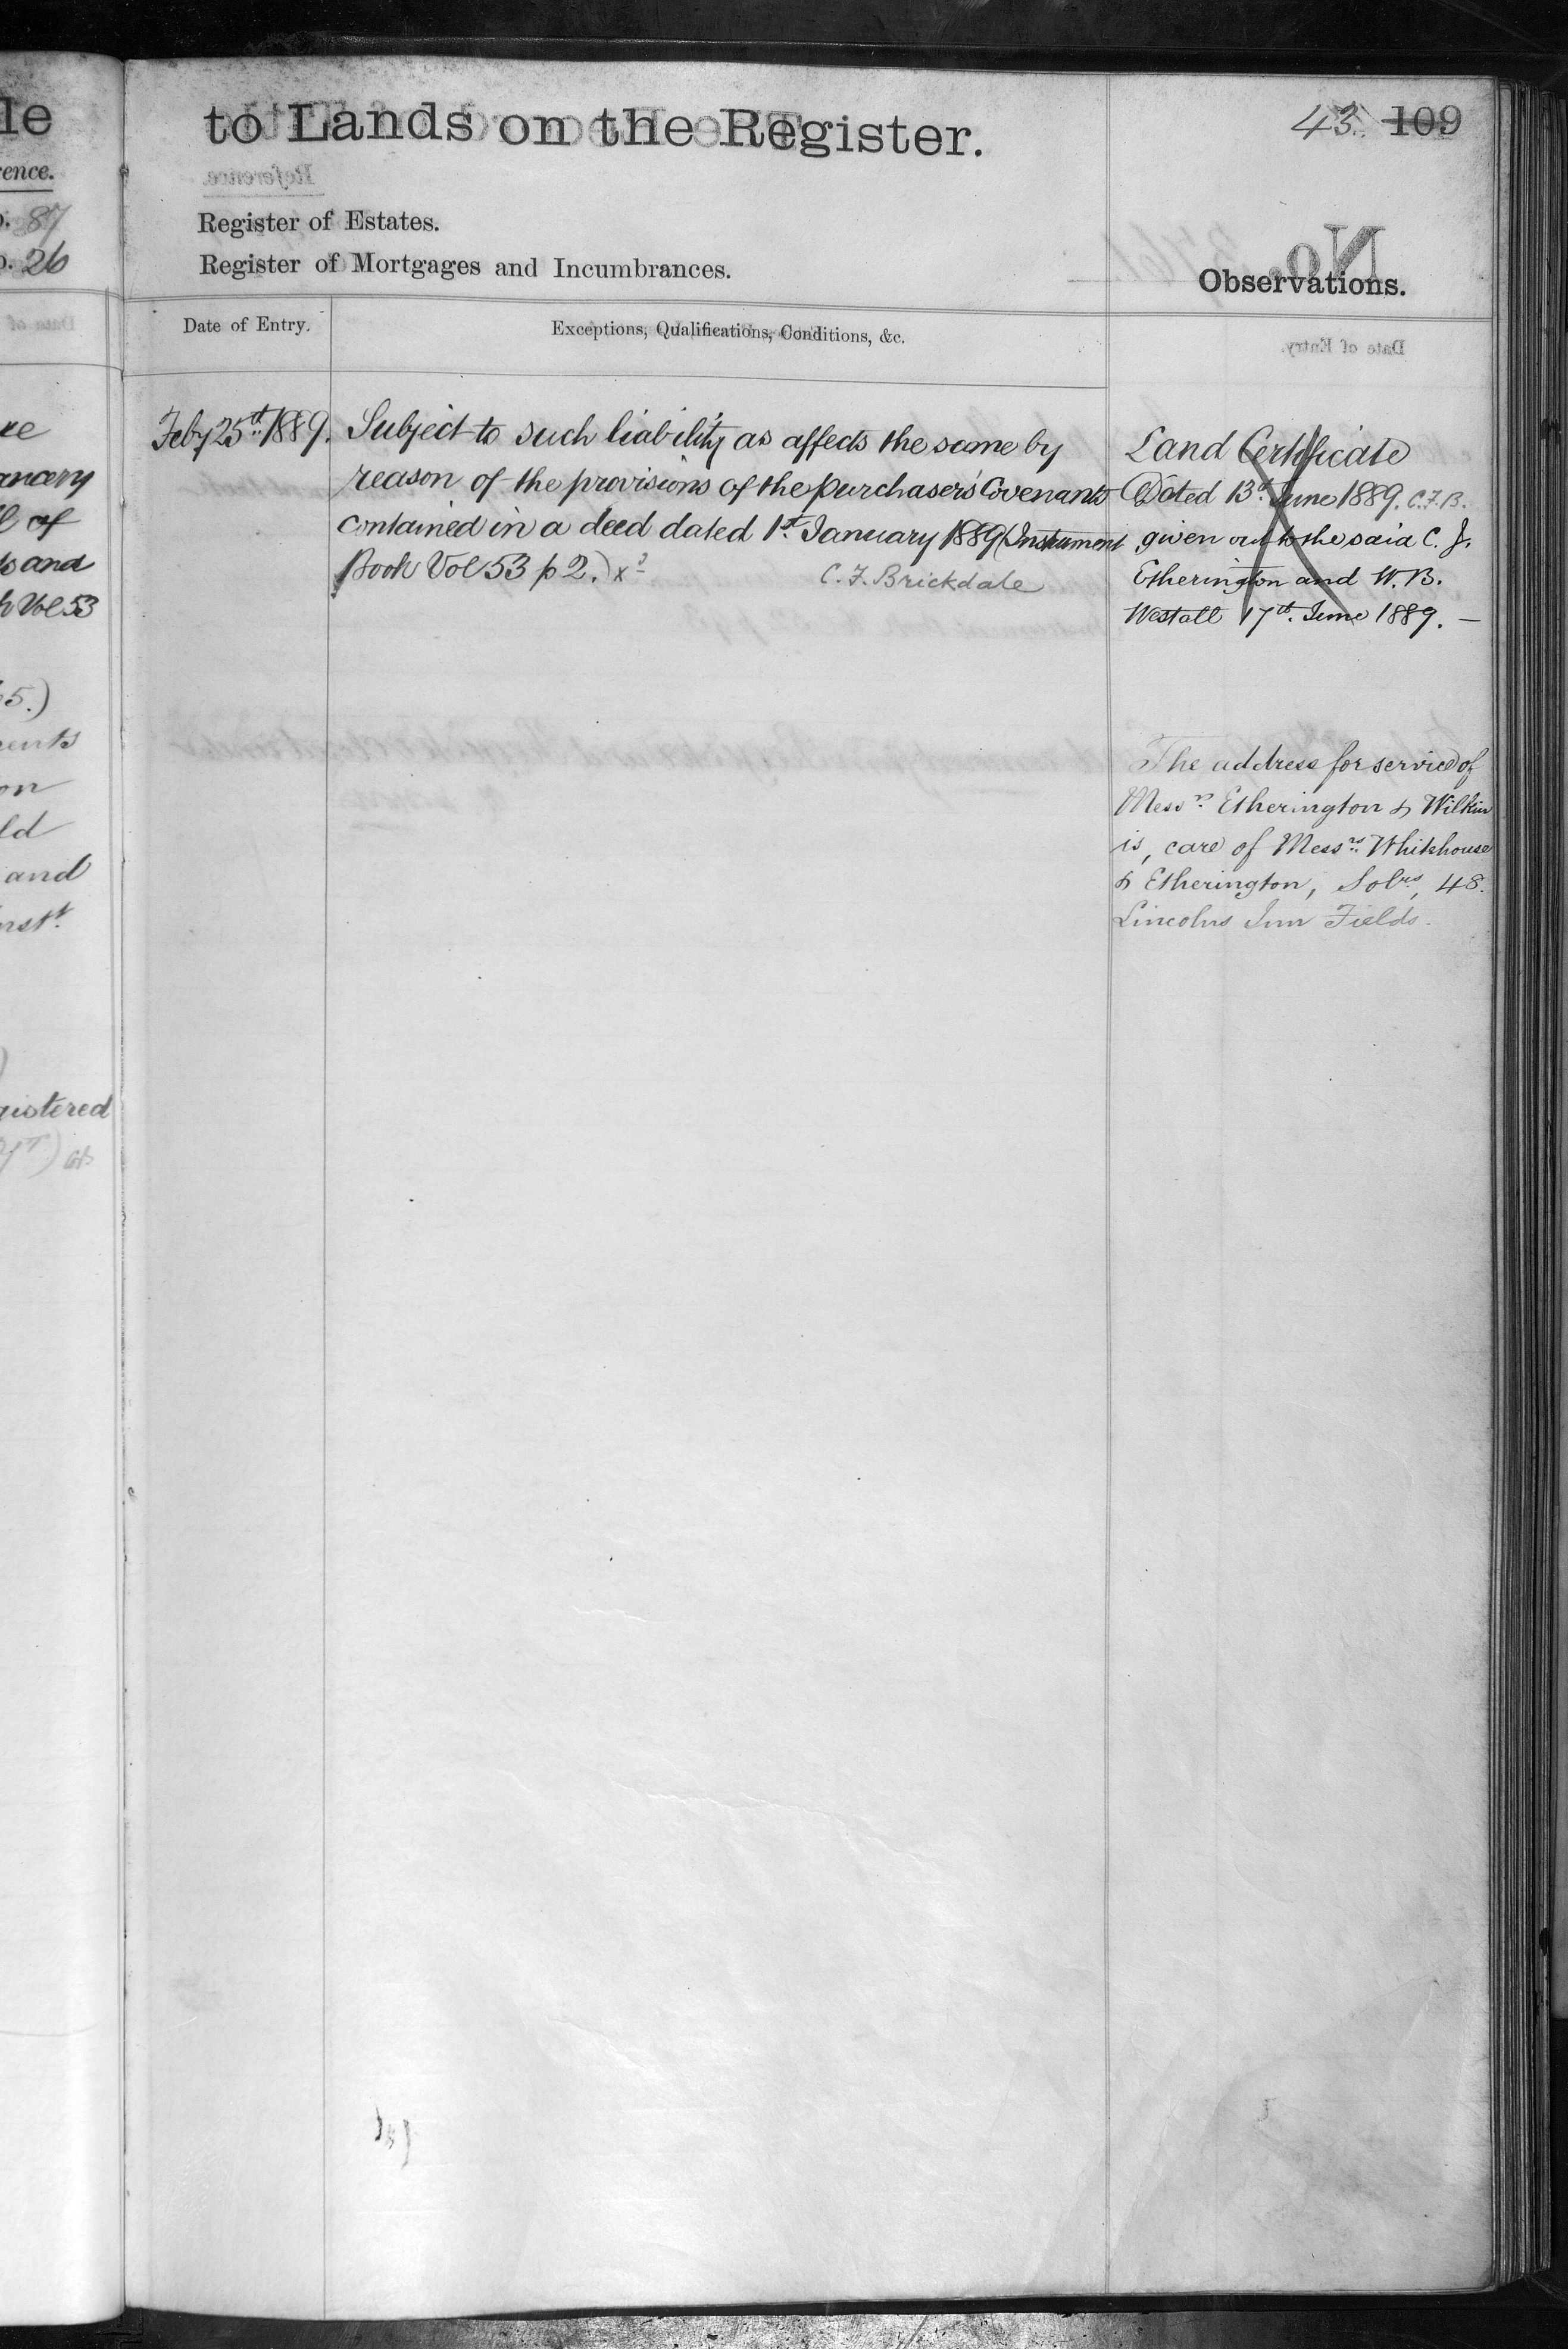 le
to Lands on the Register.
43. 109
ence.
Register of Estates.
87
26
Register of Mortgages and Incumbrances.
Observations.
Date of Entry.
Exceptions, Qualifications, Conditions, &c.
Feby 25th 1889.
Subject to such liability as affects the same by
reason of the provisions of the purchasers Covenants
contained in a deed dated 1st January 1889 (Instrument
Book Vol 53 p 2.)
C. F. Brickdale
Land Certificate
Dated 13th June 1889. C.F.B.
given out to the said C. J.
Etherington and W. B.
Westall 17th June 1889. —
The address for service of
Messrs Etherington & Wilkin
is, care of Messrs Whitehouse
& Etherington, Solrs, 48.
Lincolns Inn Fields.
of
and
Vol 53
65.)
on
ld
and
gistered